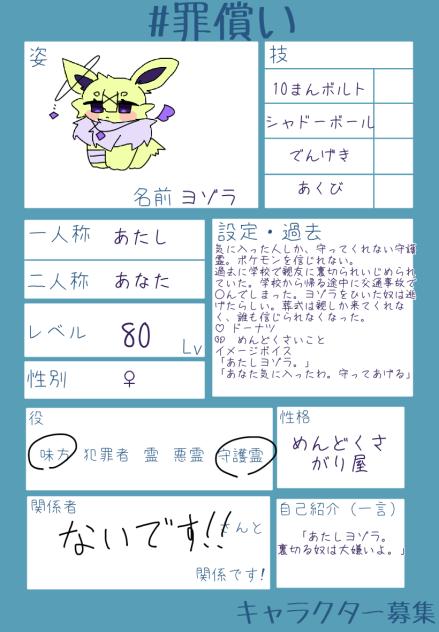 #罪償い
姿
名前 ヨゾラ
技
10まんボルト
シャドーボール
でんげき
あくび
一人称 あたし
二人称 あなた
レベル 80 Lv
性別 ♀
設定・過去
気に入った人しか、守ってくれない守護
霊。ポケモンを信じれない。
過去に学校で親友に裏切られいじめられ
ていた。学校から帰る途中に交通事故で
〇んでしまった。ヨゾラをひいた奴は逃
げたらしい。葬式は親しか来てくれな
く、誰も信じられなくなった。
♡ ドーナツ
めんどくさいこと
イメージボイス
「あたしヨゾラ。」
「あなた気に入ったわ。守ってあげる」
役
味方 犯罪者 霊 悪霊 守護霊
性格
めんどくさ
がり屋
関係者
ないです!! さんと
関係です!
自己紹介（一言）
「あたしヨゾラ。
裏切る奴は大嫌いよ。」
キャラクター募集